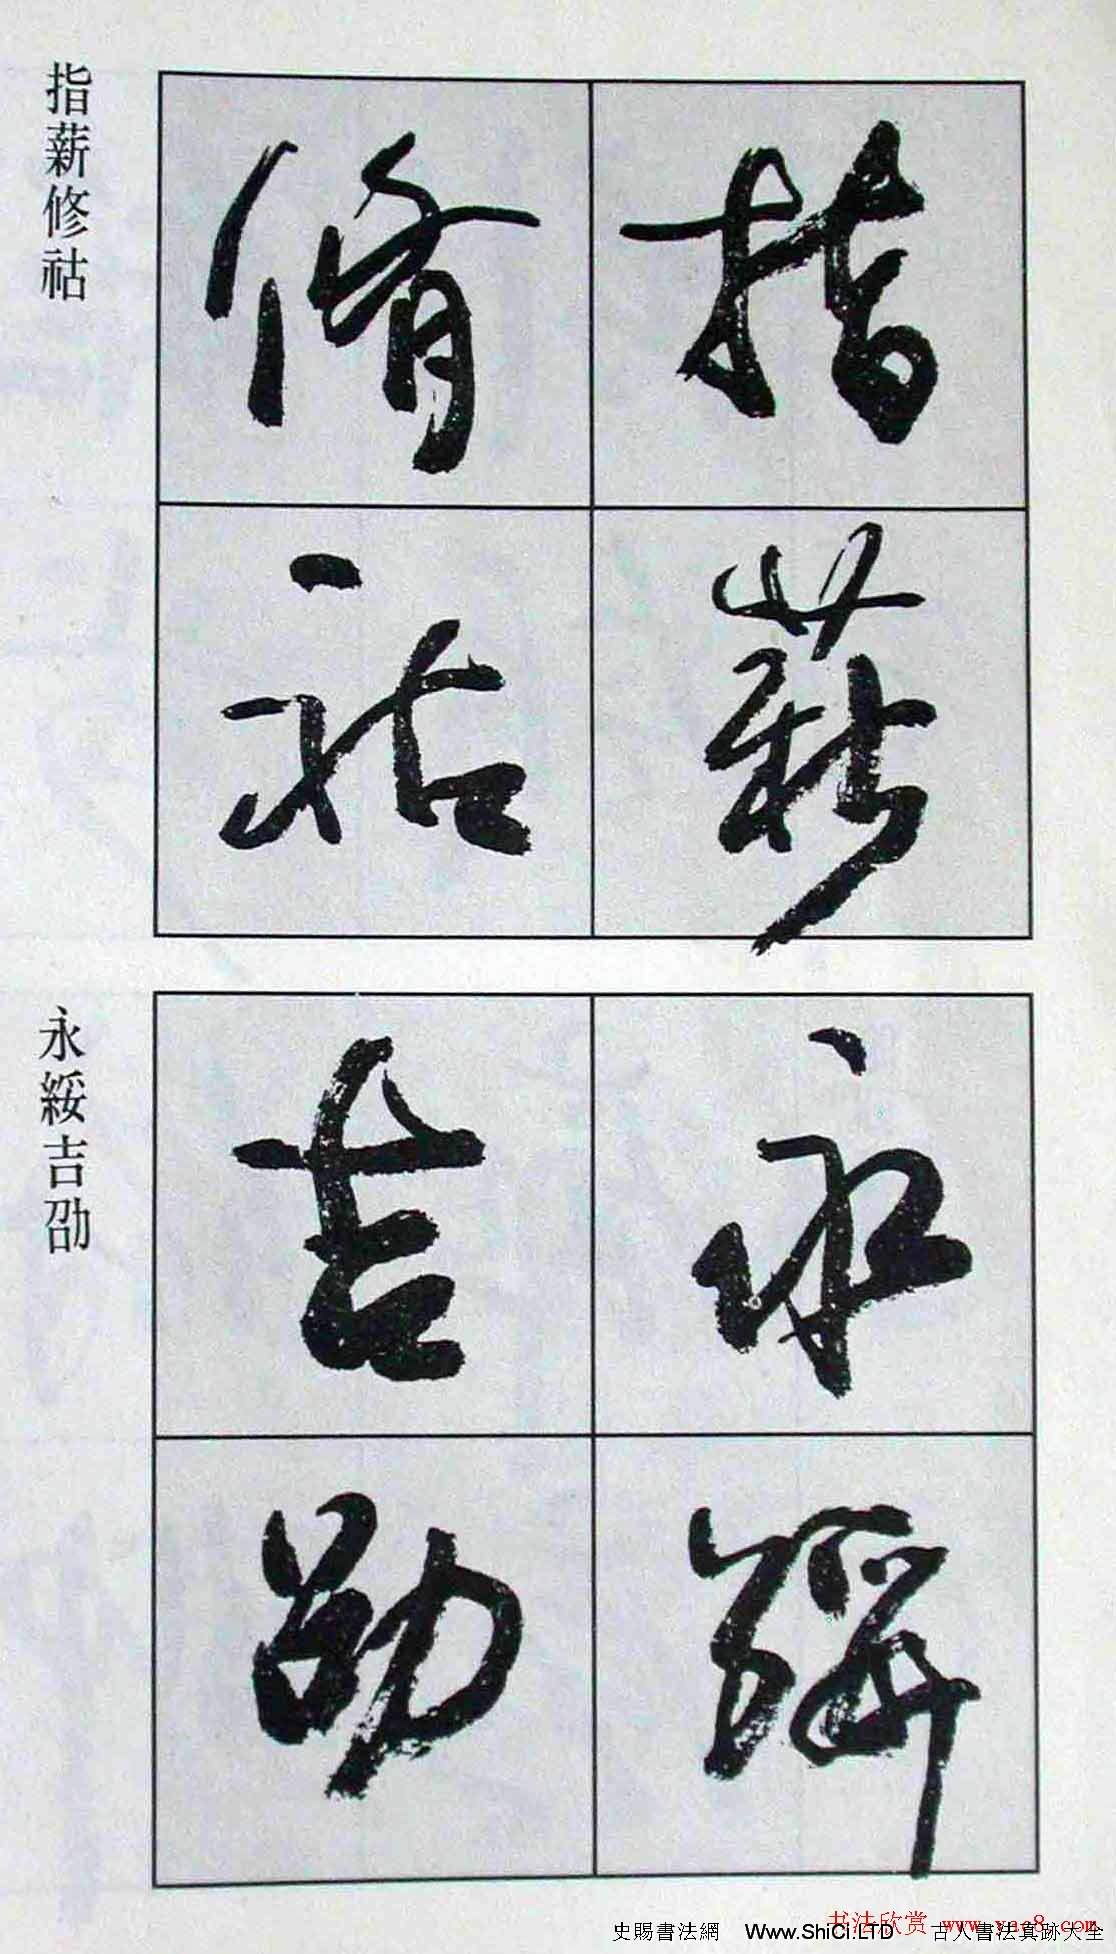 指薪修祜
指薪
修祜
永綏吉劭
永綏
吉劭
史賜書法網 Www.ShiCi.LTD 古人書法真跡大全
书法欣赏 www.yac8.com